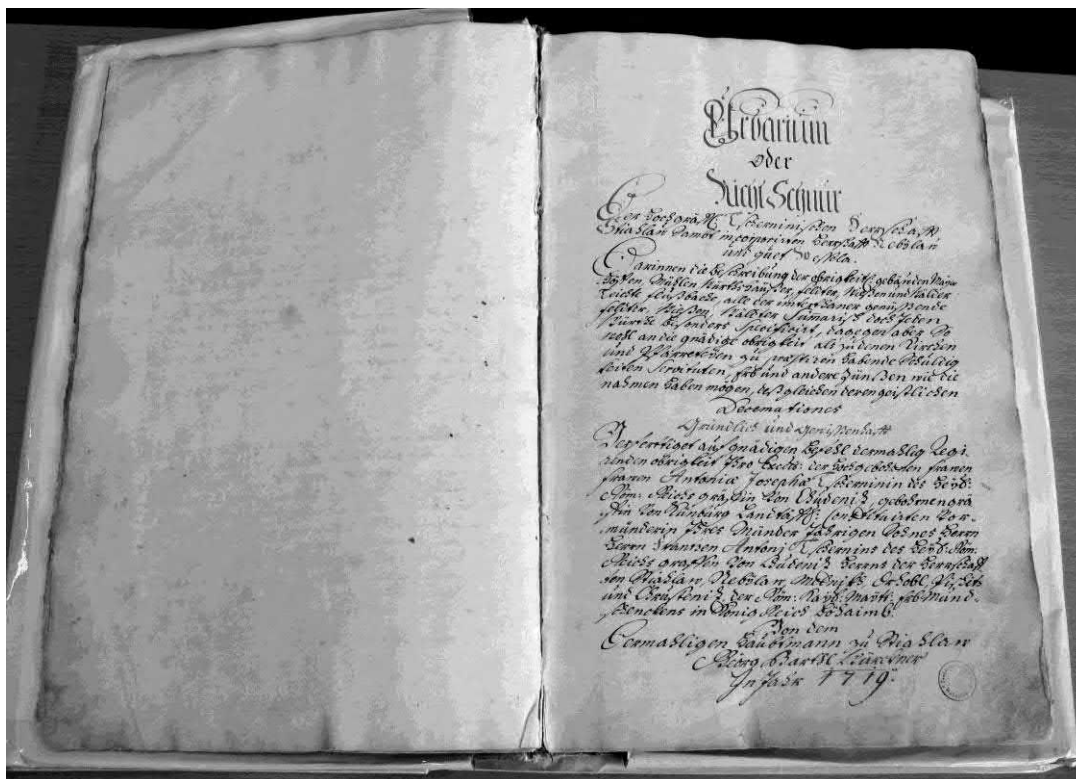 Urbarium
oder
Richt Schnur
Der Hochgräffl: Tscherninischen Herrschafft
Stiahlau sambt incorporirten Herrschafft Nebylau
und guet
Darinnen die beschreibung der obrigkeitl: gebäuden Mayer
Höffen, Mühlen Würths häußer, felder, Wießen und Wälder
Teichte flüßbache, alle der unterthaner genüßende
felder, Wießen, Wälder Sumarisch doch jeden
Würthe besonders Specificirt, dagegen aber So
wohl an die gnädige obrigkeit als zu denen Kirchen
und Pfarrotheyen zu praestiren habende Schuldig
keiten Servituten, Erb und andere Zünßen wie die
nahmen haben mögen, deßgleichen deren geistlichen
Decemationes
Gründlich und
Verfertiget auf gnädigen befehl dermahlig Regi-
renden obrigkeit Ihro Excell: der Hochgebohrnen frauen
frauen Antoniae Josephae Tscherninin des Heyl:
Röm: Reichs gräfin von Chudenitz, gebohrnen grä
ffin von Künburg constituirten Vor-
münderin Ihres Münder Jährigen Sohnes Herrn
Herrn Frantzen Antoni Tschernins des Heyl: Röm:
Reichs graffen von Chudenitz Herrns der Herrschafft
von Stiahlau, Nebylau,
und der Röm: Kayl: Maytt: Erb Münd-
schenckens in König Reich Böhaimb.
Von dem
Dermahligen Haubtmann zu Stiahlau
Georg Barthl
In Jahr 1719.